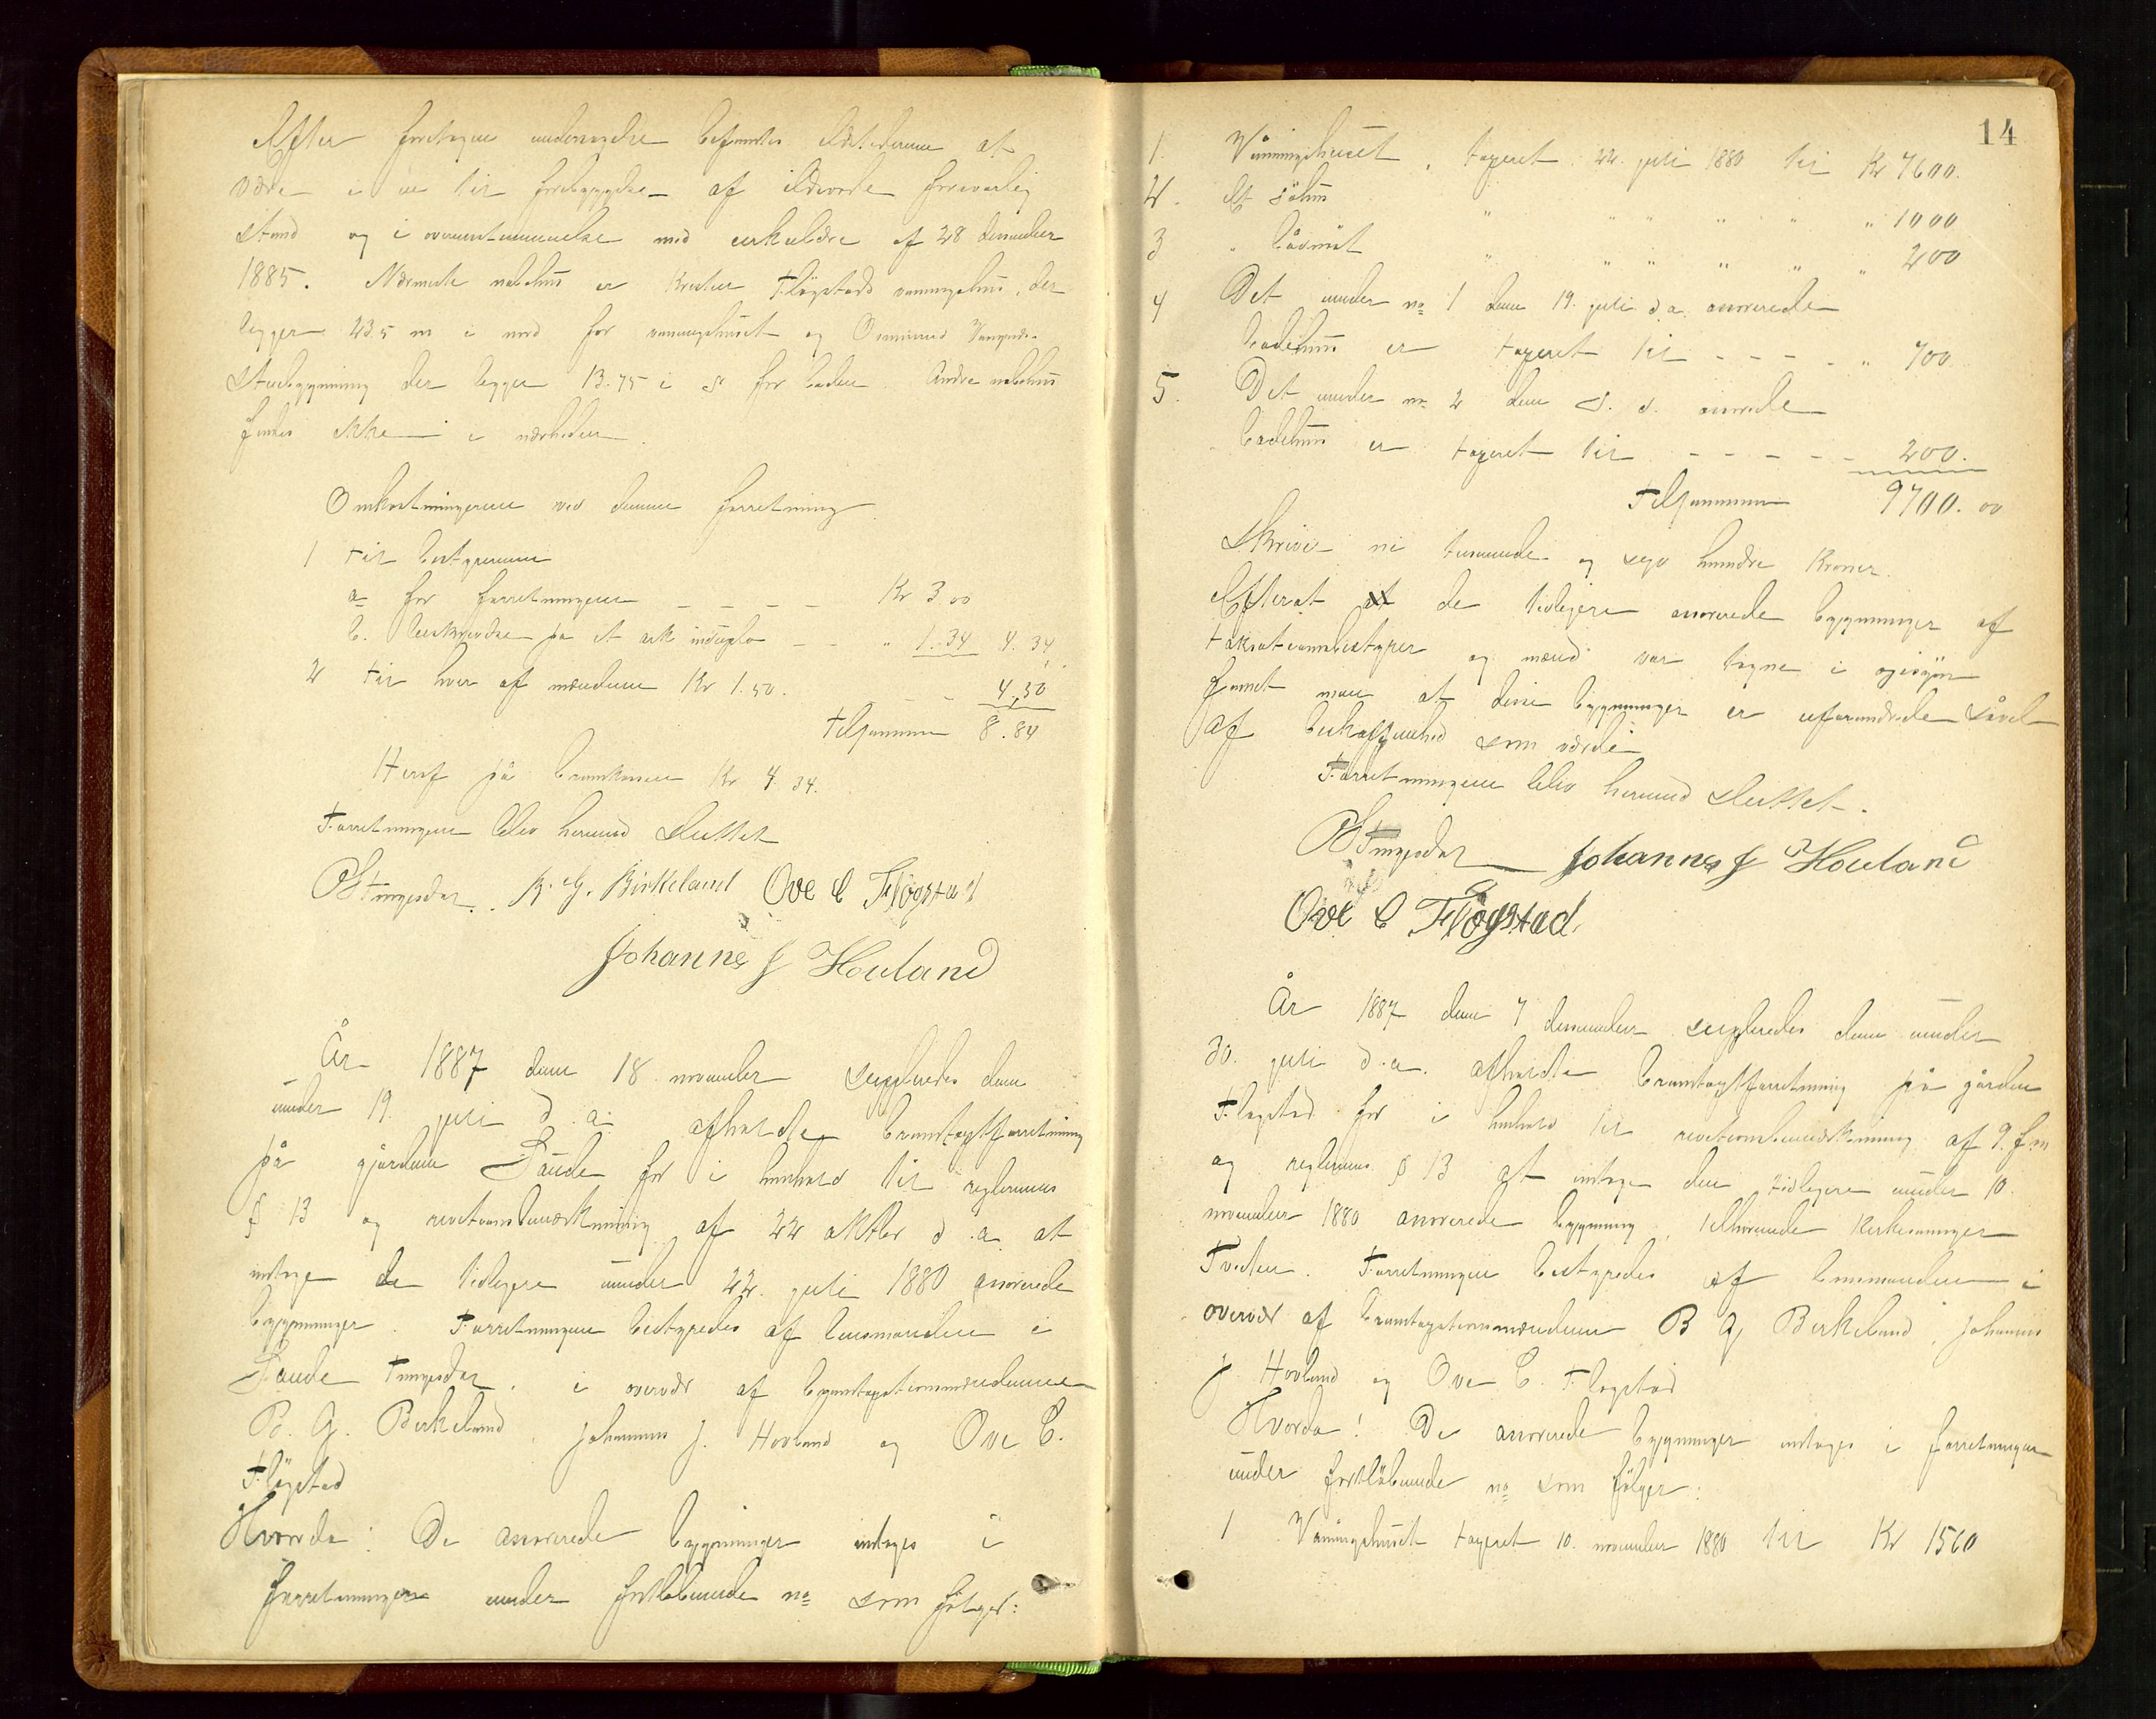 Efter foretagen undersøgelse befandtes ildstederne at
være i en til forebyggelse af ildsvåde forsvarlig
stand og i overensstemmelse med cirkulære af 28 desember
1885. Nærmeste nabohus er Flögstads våningshus, der
ligger 23.5 m i nord for våningshuset og
Stuebygning der ligger 13.75 i s for laden. Andre nabohus
findes ikke i nærheden.
Omkostningerne ved denne forretning
1 til bestyreren
a for forretningen - - - - Kr 3.00
b. beskrivelse på et ark induplo - - " 1.34 4.34
2 til hver af mændene Kr 1.50. - - 4,50
Tilsammen 8.84
Heraf på brandkassen Kr 4.34.
Forretningen blev hermed sluttet
B. G. Birkeland Ove C Flögstad
Johannes J Houland
År 1887 den 18 november suppleredes den
under 19. juli d.a. afholdte brandtaxtforretning
på gården Saude for i henhold til reglemens
§ 13 og revisionsbemærkning af 22 oktbr d.a. at
indtage de tidligere under 22. juli 1880 assurerede
bygninger. Forretningen bestyredes af lensmanden i
Saude i overvær af brandtaxtionsmændene
B. G. Birkeland, Johannes J. Hovland og Ove C.
Flögstad
Hvorda: De assurerede bygninger indtages i
forretningen under fortløbende no som følger:
14
1. Våningshuset, taxeret 22. juli 1880 til Kr 7600.
2. Et söhus " " " " " " 1000
3 " bådnöst " " " " " " 200
4 Det under no 1 den 19. juli d.a. assurerede
ladehus er taxeret til - - - - - " 700
5. Det under no 2 den s. d. assurede
ladehus er taxeret til - - - - - 200.
Tilsammen 9700.00
Skrive ni tusende og syv hundre Kroner.
Efterat de tidligere assurerede bygninger af
taksationsbestyrer og mænd var tagne i øiesyn
fandt man at disse bygninger er uforandrede såvel
af beskaffenhed som værdi
Forretningen blev hermed sluttet.
Johannes J Houland
Ove C Flögstad.
År 1887 den 7 desember suppleredes den under
30. juli d.a. afholdte brandtaxtforretning på gården
Flögstad for i henhold til revisionsbemærkning af 9. f.m.
og reglemens § 13 at indtage den tidligere under 10.
november 1880 assurerede bygning, tilhørende Kirkesanger
Tveden. Forretningen bestyredes af lensmanden i
overvær af brandtaxtionsmændene B G Birkeland, Johannes
J. Hovland og Ove C. Flögstad
Hvorda! De assurerede bygninger indtages i forretningen
under fortløbende no som følger:
1 Våningshuset taxeret 10. november 1880 til Kr 1560